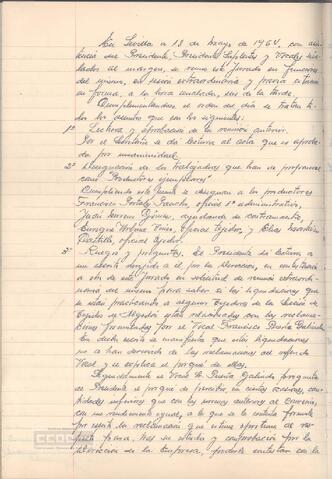 En Sevilla a 13 de Mayo de 1964, con asis-
tencia del Presidente, Presidente Suplente y Vocales
al margen, se reune este Jurado en funciones
del mismo, en sesión extraordinaria y previa citación
en forma, a la hora señalada, seis de la tarde.
Cumplimentandose el orden del día se tratan
los asuntos que son los siguientes:
1º Lectura y aprobación de la reunión anterior.
Por el Secretario se da lectura al acta que es aproba-
da por unanimidad.
2º Designación de los trabajadores que han de proponerse
como "Productores ejemplares".
Cumpliendo este punto se designan a los productores
Francisco Portales, oficial 1º administrativo,
Juan Jimenez, ayudante de contramaestre,
Enrique Molina, oficial tejedor, y
oficial tejedor.
3º Ruegos y preguntas. El Presidente da lectura a
un escrito dirigido a él por la Dirección, en contestación
a otro de este Jurado en solicitud de reunión extraordi-
naria del mismo para saber si las liquidaciones que
se están practicando a algunos tejedores de la Sección de
Tejidos de Algodón están relacionadas con las reclama-
ciones formuladas por el Vocal Francisco
En dicho escrito se manifiesta que estas liquidaciones
no se han derivado de las reclamaciones del referido
Vocal y se explica el porqué de ellas.
Seguidamente el Vocal Sr. Galindo pregunta
al Presidente el porqué de percibir en ciertas ocasiones, can-
tidades inferiores que con las normas anteriores al convenio,
con un rendimiento igual, a lo que se le contesta formule
por escrito la reclamación que estime oportuna al res-
pecto para, tras su estudio y comprobación por la
Dirección de la Empresa, poderle contestar con la
CCOO